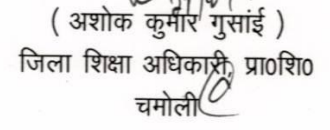 ( अशोक कुमार गुसांई )
जिला शिक्षा अधिकारी, प्रा०शि०
चमोली